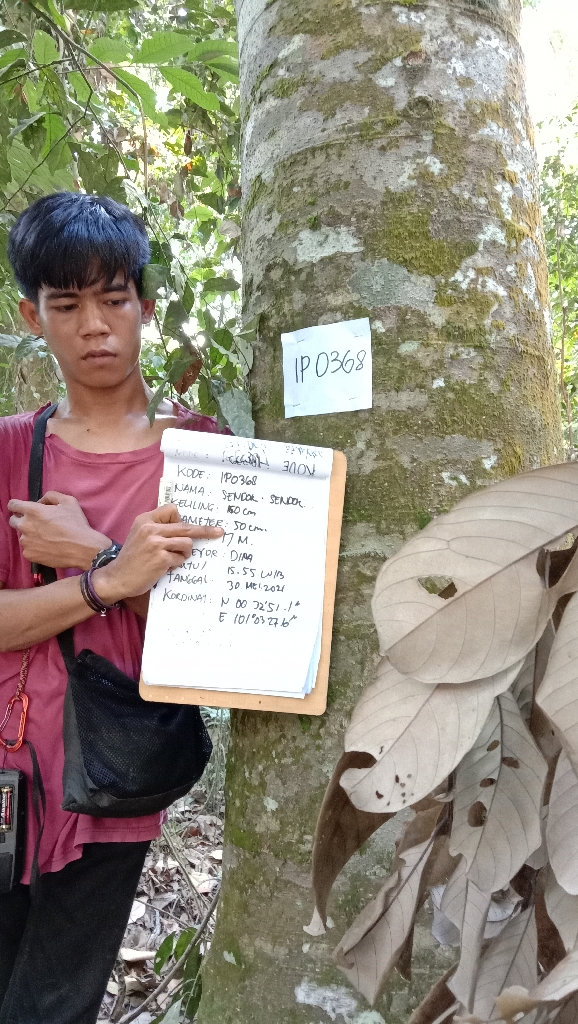 IP 0368
KODE
KODE: IP0368
NAMA: SENDOK - SENDOK
KELILING: 160 cm
AMETER: 50 cm.
17 M.
EYOR: DIRA
15.55 WIB
TANGGAL: 30 MEI 2021
KORDINAT: N 00 32'51.1"
E 101°03'27.6"